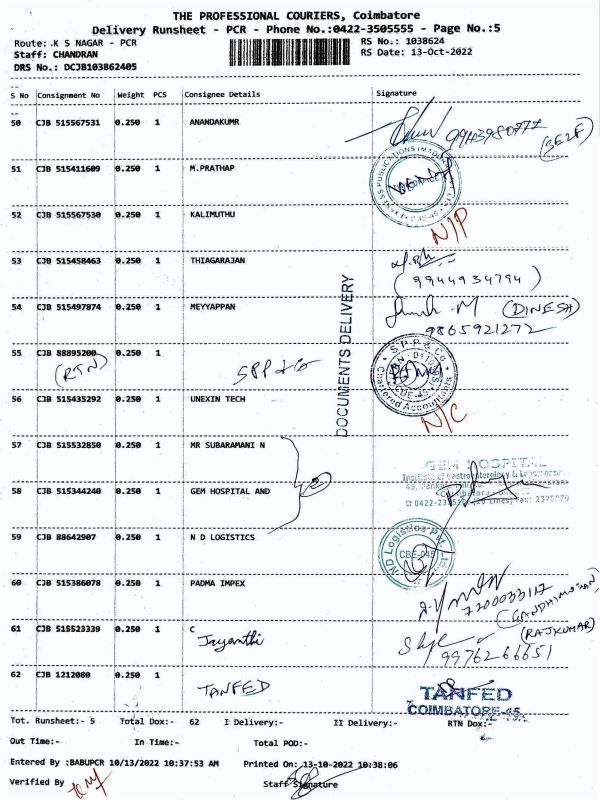 THE PROFESSIONAL COURIERS, Coimbatore
Delivery Runsheet - PCR - Phone No.:0422-3505555 - Page No.:5
Route: K S NAGAR - PCR RS No.: 1038624
Staff: CHANDRAN RS Date: 13-Oct-2022
DRS No.: DCJB103862405
S No Consignment No Weight PCS Consignee Details Signature
50 CJB 515567531 0.250 1 ANANDAKUMR
51 CJB 515411609 0.250 1 M.PRATHAP
52 CJB 515567530 0.250 1 KALIMUTHU N/P
53 CJB 515458463 0.250 1 THIAGARAJAN
(9944934794)
54 CJB 515497874 0.250 1 MEYYAPPAN (DINESH)
9865921272
DOCUMENTS DELIVERY
55 CJB 88895200 0.250 1 SPP & Co
(RTN)
S P P & Co
Chartered Accountants
56 CJB 515435292 0.250 1 UNEXIN TECH N/C
57 CJB 515532850 0.250 1 MR SUBARAMANI N
GEM HOSPITAL
58 CJB 515344240 0.250 1 GEM HOSPITAL AND 2
59 CJB 88642907 0.250 1 N D LOGISTICS
ND Logistics Pvt. Ltd.
CBE-045
60 CJB 515386078 0.250 1 PADMA IMPEX
7200033117
61 CJB 515523339 0.250 1 C (RAJKUMAR)
Jayanthi 9976266651
62 CJB 1212080 0.250 1
TANFED TANFED
COIMBATORE-45
Tot. Runsheet:- 5 Total Dox:- 62 I Delivery:- II Delivery:- RTN Dox:-
Out Time:- In Time:- Total POD:-
Entered By :BABUPCR 10/13/2022 10:37:53 AM Printed On: 13-10-2022 10:38:06
Verified By Staff Signature